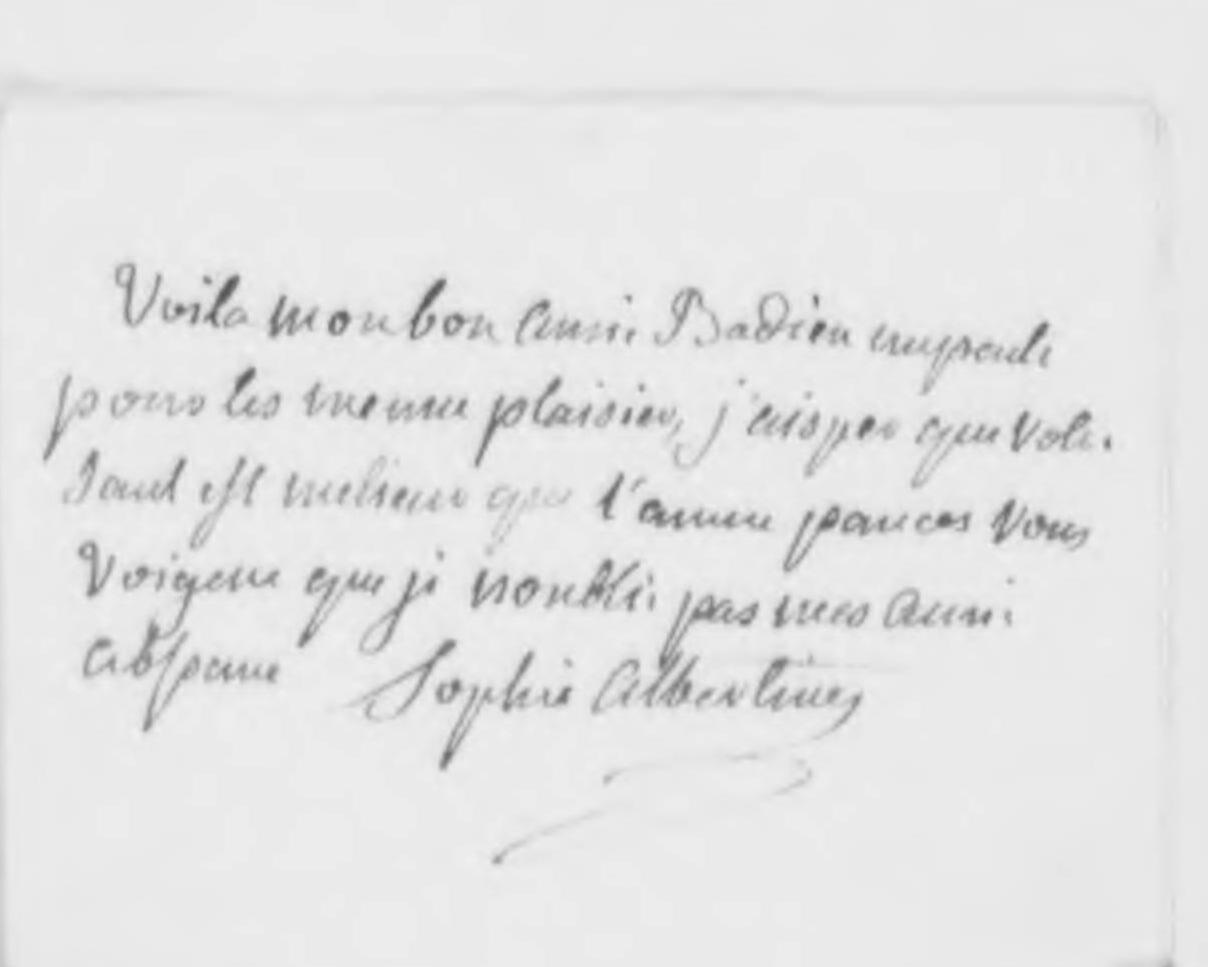 Voila mon bon ami Badin
pour les menu plaisier, j'aisper que votr.
Sant est melieur que l'annee pances Vous
Voigere que je n'oubli pas mes ami
abspane Sophie Albertine